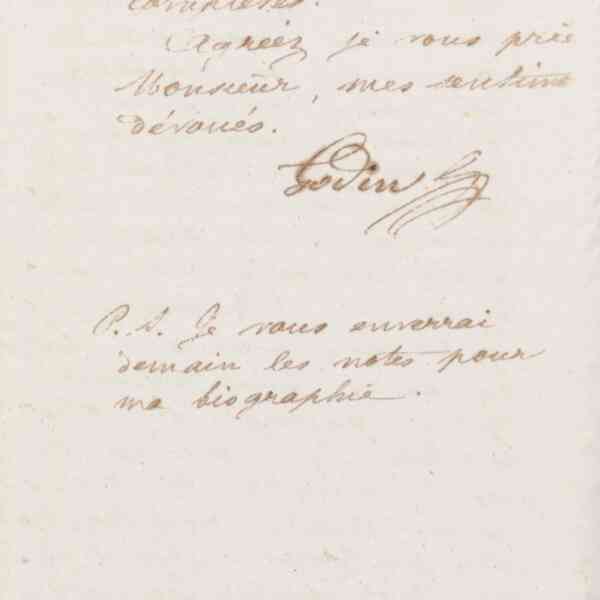 complètes.
Agréez je vous prie
Monsieur, mes sentime
dévoués.
Godin
P. S. Je vous enverrai
demain les notes pour
ma biographie.